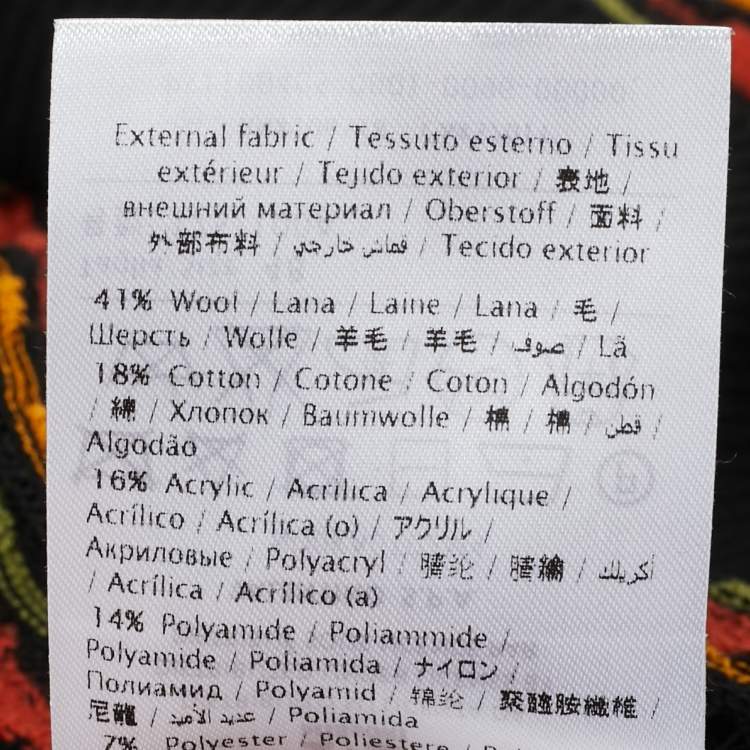 External fabric / Tessuto esterno / Tissu
extérieur / Tejido exterior / 表地 /
внешний материал / Oberstoff / 面料 /
外部布料 / قماش خارجي / Tecido exterior
41% Wool / Lana / Laine / Lana / 毛 /
Шерсть / Wolle / 羊毛 / 羊毛 / صوف / Lã
18% Cotton / Cotone / Coton / Algodón
/ 綿 / Хлопок / Baumwolle / 棉 / 棉 / قطن /
Algodão
16% Acrylic / Acrilica / Acrylique /
Acrílico / Acrílica (o) / アクリル /
Акриловые / Polyacryl / 腈纶 / 腈綸 / أكريلك
/ Acrílica / Acrílico (a)
14% Polyamide / Poliammide /
Polyamide / Poliamida / ナイロン /
Полиамид / Polyamid / 锦纶 / 聚醯胺纖維 /
尼龍 / عديد الأميد / Poliamida
7% Polyester / Poliestere /